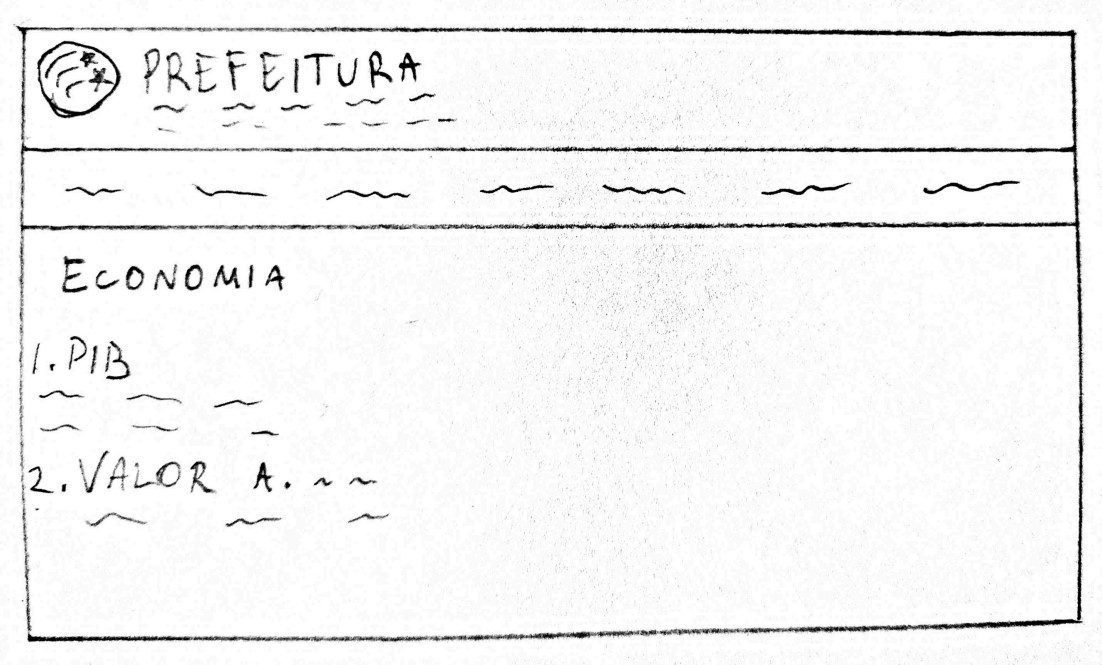 PREFEITURA
ECONOMIA
1. PIB
2. VALOR A.